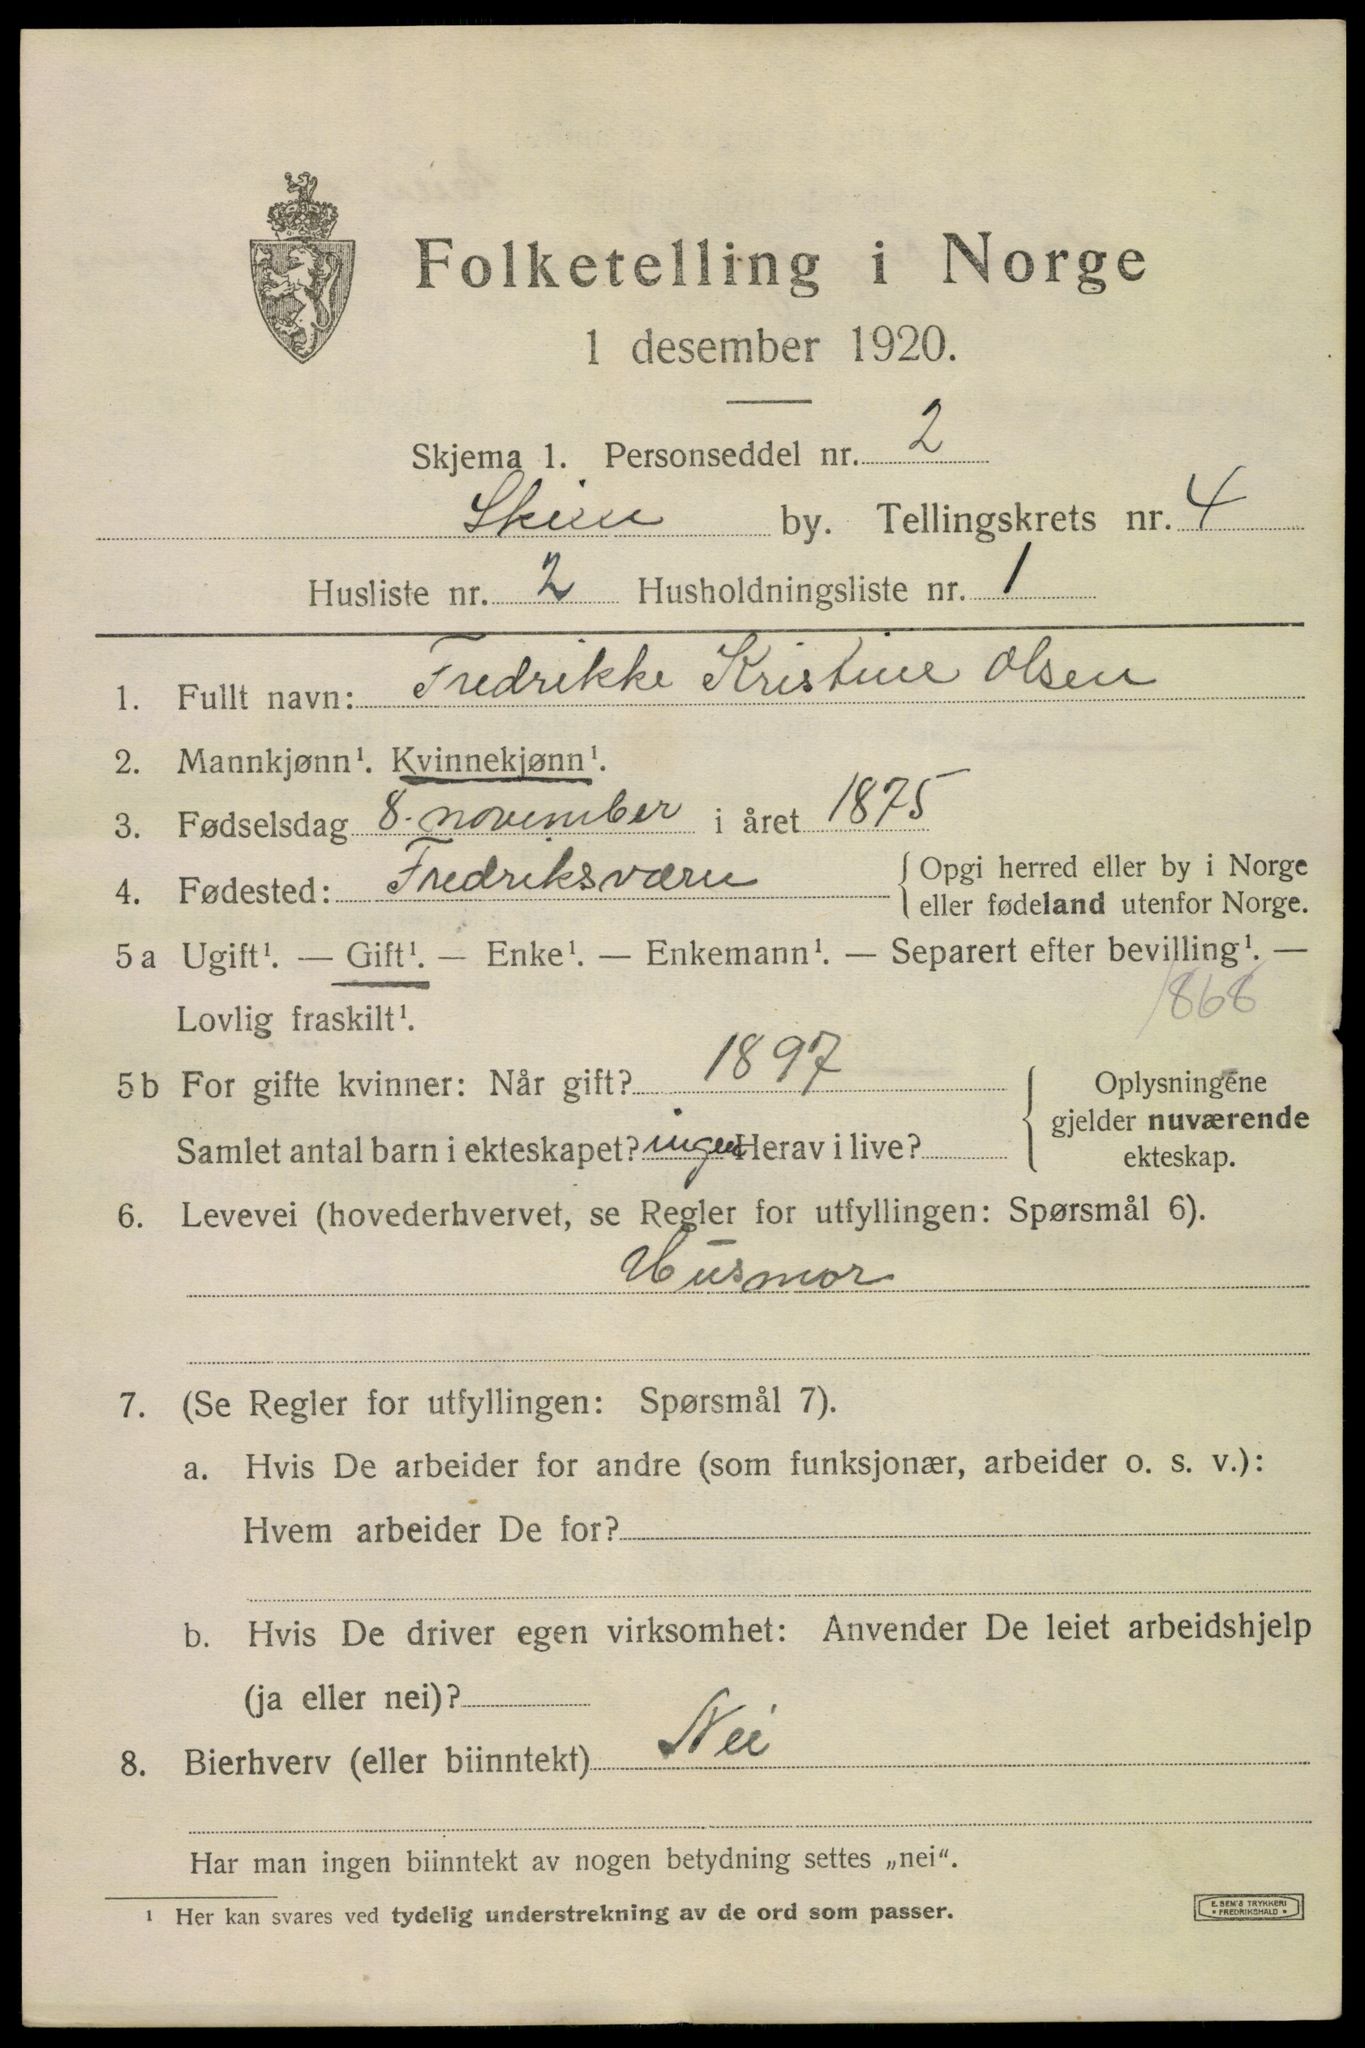 Folketelling i Norge
1 desember 1920.
Skjema 1. Personseddel nr. 2
Skien by. Tellingskrets nr. 4
Husliste nr. 2 Husholdningsliste nr. 1
1. Fullt navn: Fredrikke Kristine Olsen
2. Mannkjønn¹. Kvinnekjønn¹.
3. Fødselsdag 8. november i året 1875
4. Fødested: Fredriksværn { Opgi herred eller by i Norge
eller fødeland utenfor Norge.
5 a Ugift¹. — Gift¹. — Enke¹. — Enkemann¹. — Separert efter bevilling¹. —
Lovlig fraskilt¹.
1868
5 b For gifte kvinner: Når gift? 1897
Samlet antal barn i ekteskapet? ingen Herav i live?
{ Oplysningene
gjelder nuværende
ekteskap.
6. Levevei (hovederhvervet, se Regler for utfyllingen: Spørsmål 6).
Husmor
7. (Se Regler for utfyllingen: Spørsmål 7).
a. Hvis De arbeider for andre (som funksjonær, arbeider o. s. v.):
Hvem arbeider De for?
b. Hvis De driver egen virksomhet: Anvender De leiet arbeidshjelp
(ja eller nei)?
8. Bierhverv (eller biinntekt) Nei
Har man ingen biinntekt av nogen betydning settes „nei“.
¹ Her kan svares ved tydelig understrekning av de ord som passer.
E. SEM'S TRYKKERI
* FREDRIKSHALD *